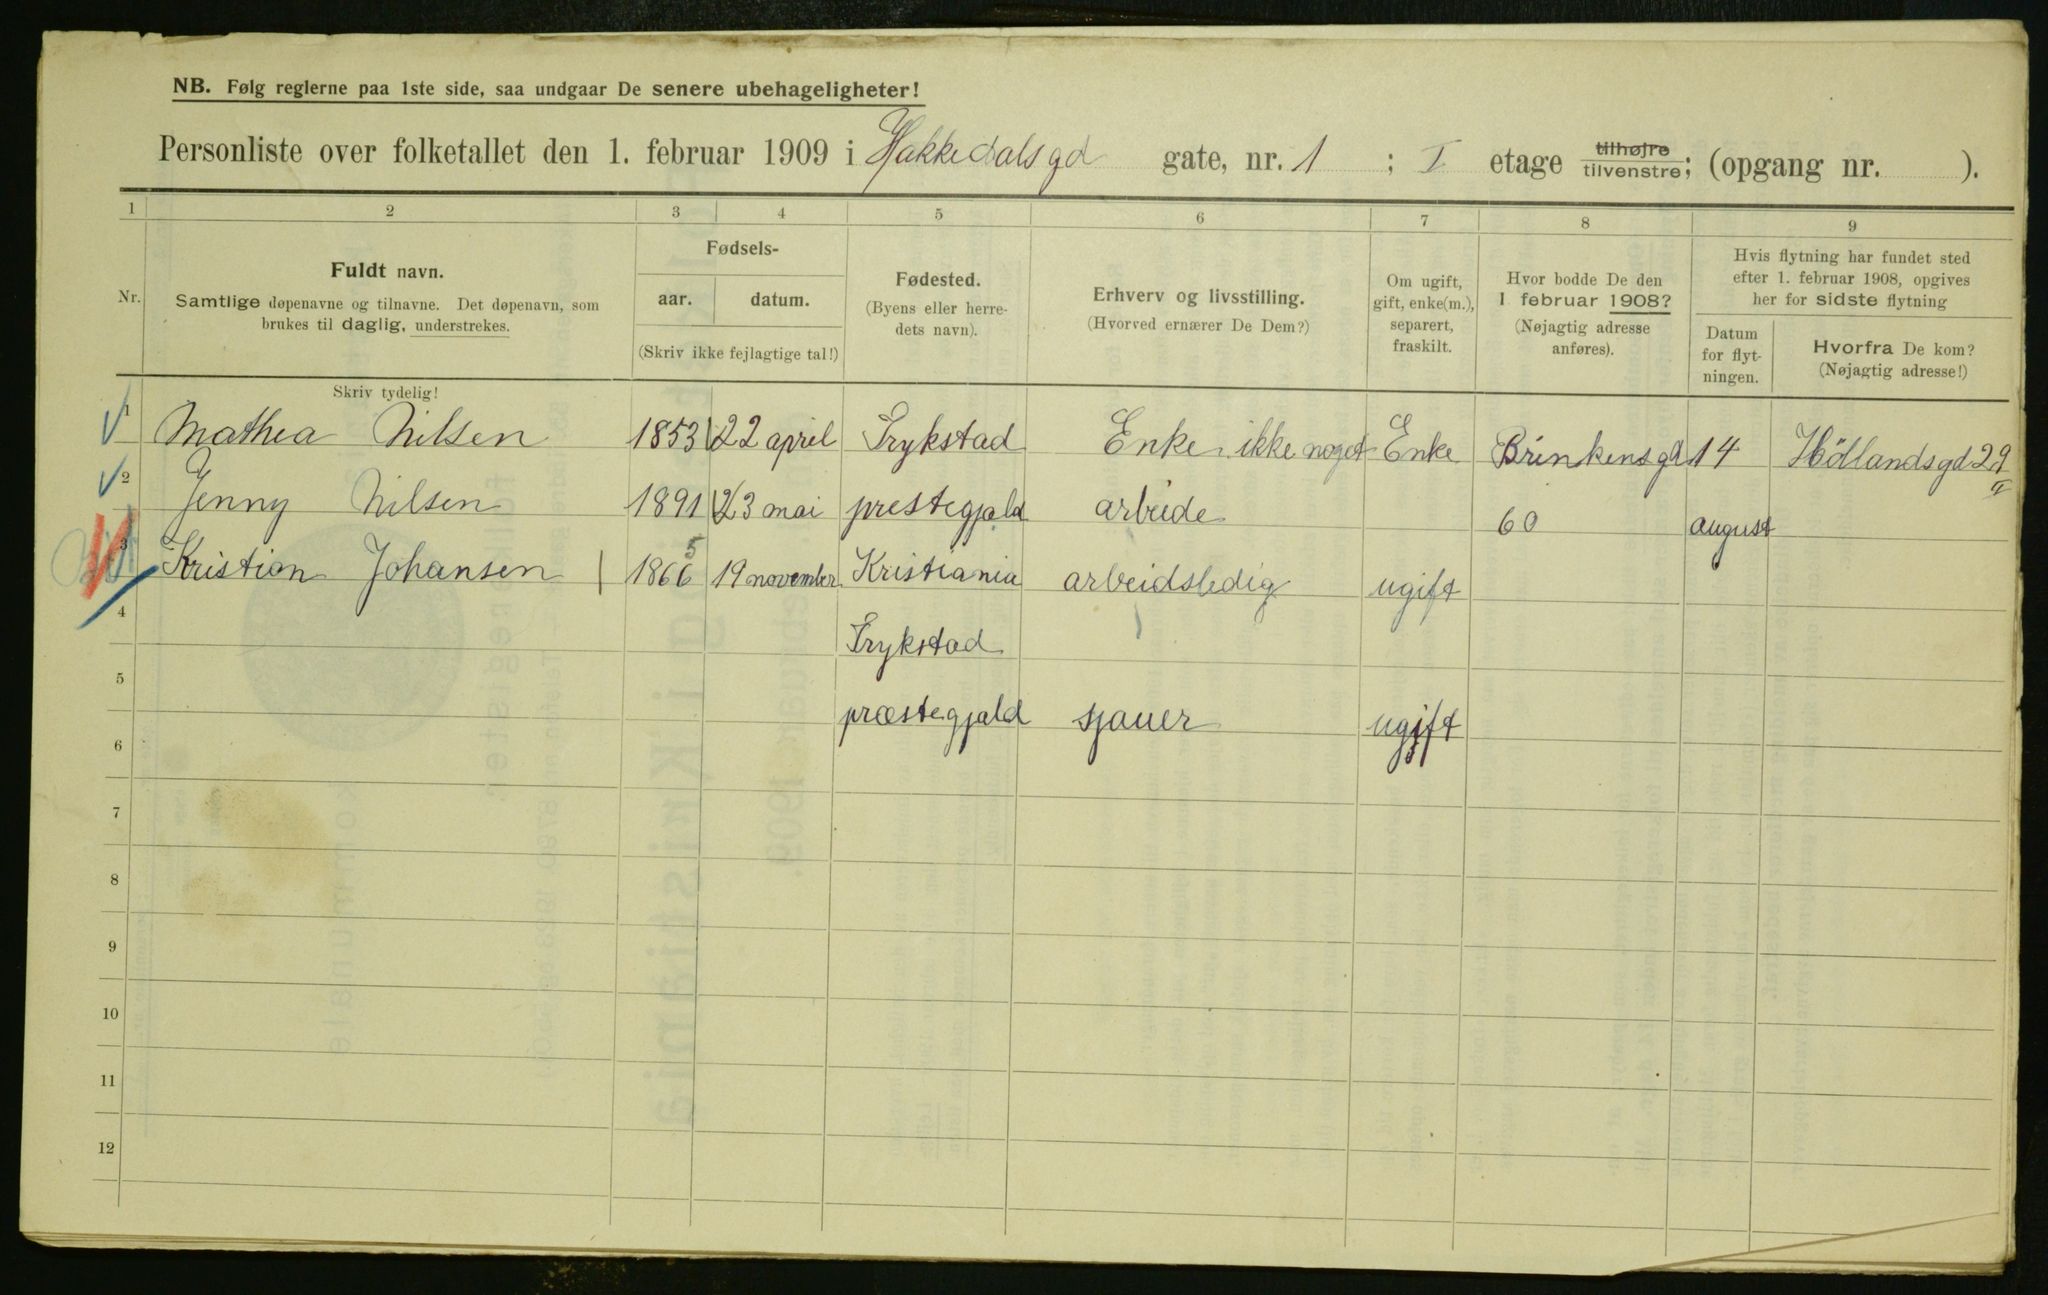 NB. Følg reglerne paa 1ste side, saa undgaar De senere ubehageligheter!
Personliste over folketallet den 1. februar 1909 i Hakkedalsgd gate, nr. 1 ; I etage tilhøjre tilvenstre; (opgang nr. ).
1 2 3 4 5 6 7 8 9
Nr.
Fuldt navn.
Samtlige døpenavne og tilnavne. Det døpenavn, som
brukes til daglig, understrekes.
Fødsels-
aar. datum.
(Skriv ikke fejlagtige tal!)
Fødested.
(Byens eller herre-
dets navn).
Erhverv og livsstilling.
(Hvorved ernærer De Dem?)
Om ugift,
gift, enke(m.),
separert,
fraskilt.
Hvor bodde De den
1. februar 1908?
(Nøjagtig adresse
anføres).
Hvis flytning har fundet sted
efter 1. februar 1908, opgives
her for sidste flytning
Datum
for flyt-
ningen.
Hvorfra De kom?
(Nøjagtig adresse!)
Skriv tydelig!
1 Mathea Nilsen 1853 22 april Trykstad Enke ikke noget Enke Brinkensgd 14 Höllandsgd 29 II
2 Jenny Nilsen 1891 23 mai prestegjald arbeide 60 august
3 Kristian Johansen 1866 5 19 november Kristiania arbeidsledig ugift
4 Trykstad
5 præstegjald sjauer ugift
6
7
8
9
10
11
12